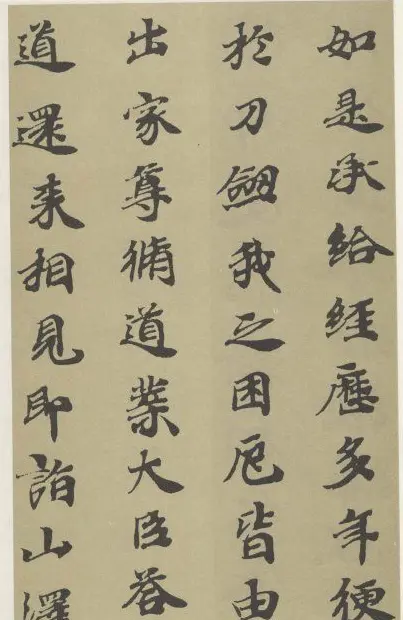 如是承給經歷多年便
扵刀劒我之困厄皆由
出家尊脩道業大臣荅
道還来相見即詣山澤